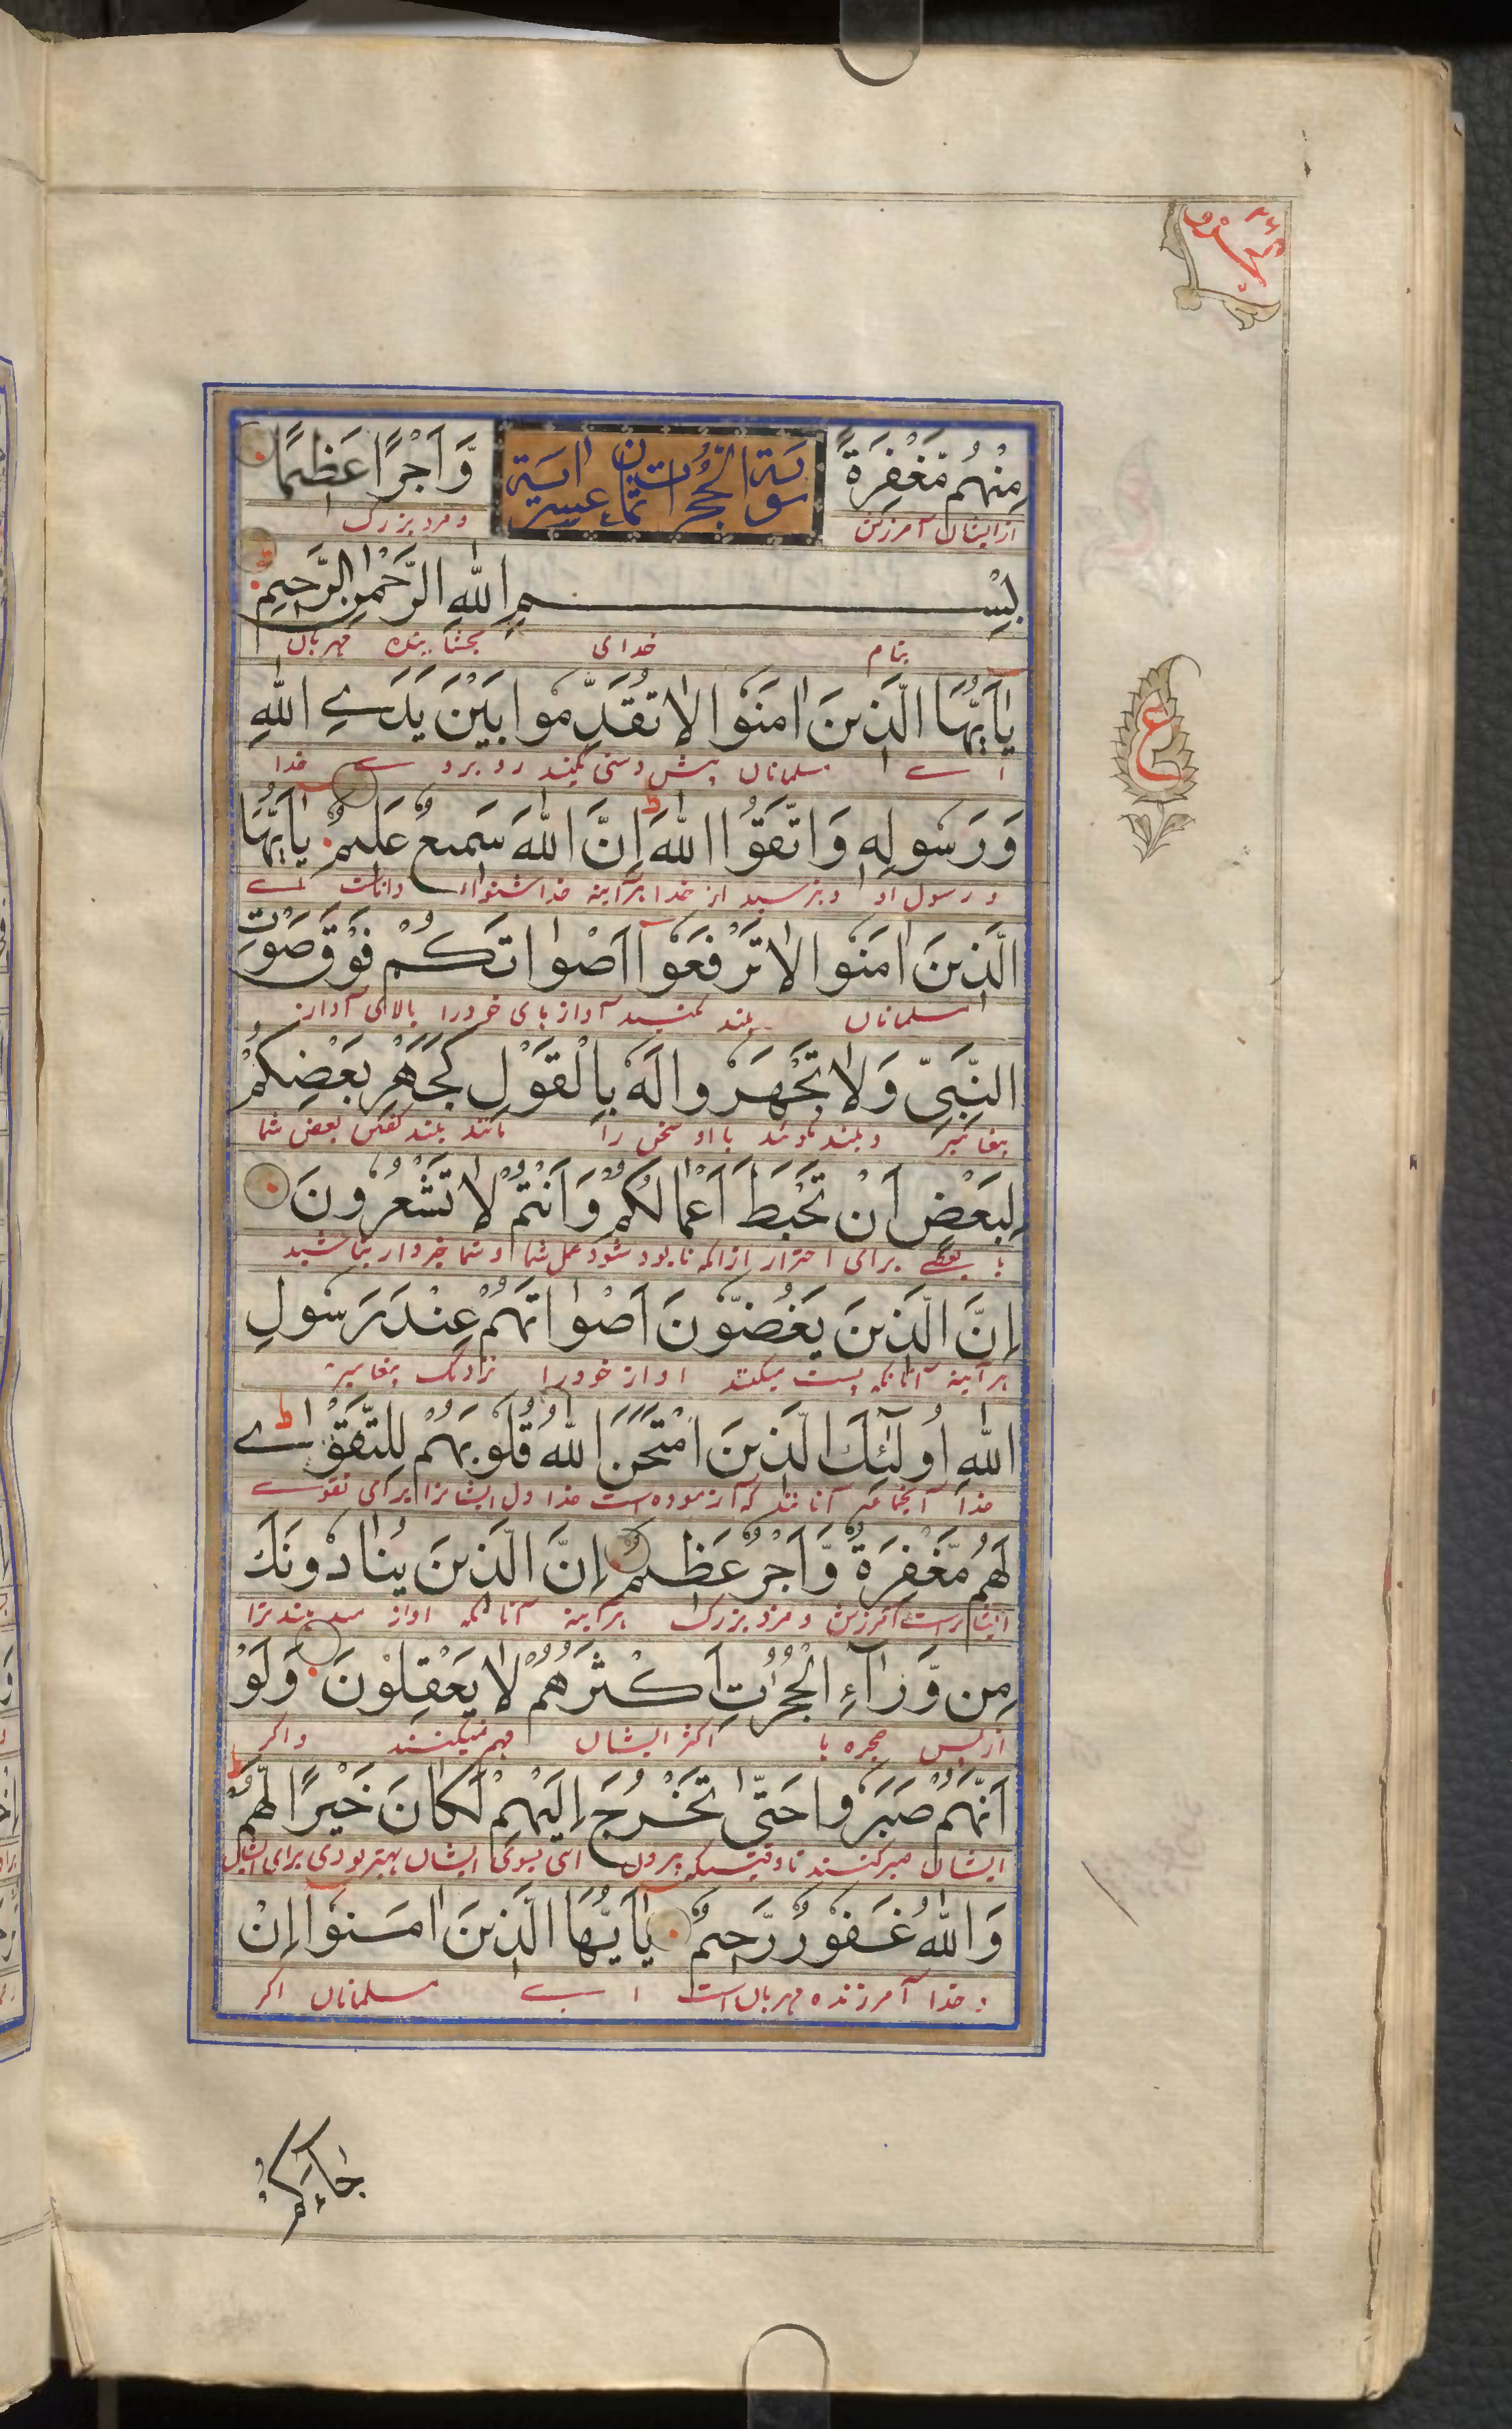 مِنْهُمْ مَّغْفِرَةً وَّاَجْرًا عَظِیْمًا
سورة الحجرات ثمان عشر اية
از ایشان آمرزش و مزد بزرگ
بِسْمِ اللّٰهِ الرَّحْمٰنِ الرَّحِیْمِ
بنام خدای بخشاینده مهربان
یٰۤاَیُّهَا الَّذِیْنَ اٰمَنُوْا لَا تُقَدِّمُوْا بَیْنَ یَدَیِ اللّٰهِ
اے مسلمانان پیش دستی مکنید روبروے خدا
وَرَسُوْلِهٖ وَاتَّقُوا اللّٰهَ ط اِنَّ اللّٰهَ سَمِیْعٌ عَلِیْمٌ یٰۤاَیُّهَا
و رسول او و بترسید از خدا هرآینه خدا شنواء داناست اے
الَّذِیْنَ اٰمَنُوْا لَا تَرْفَعُوْۤا اَصْوَاتَكُمْ فَوْقَ صَوْتِ
مسلمانان بلند مکنید آواز های خود را بالای آواز
النَّبِیِّ وَلَا تَجْهَرُوْا لَهٗ بِالْقَوْلِ كَجَهْرِ بَعْضِكُمْ
پیغامبر و بلند مگوئید با او سخن را مانند بلند گفتن بعض شما
لِبَعْضٍ اَنْ تَحْبَطَ اَعْمَالُكُمْ وَاَنْتُمْ لَا تَشْعُرُوْنَ
با بعضے برای احتراز از آنکه نابود شود عمل شما و شما خبردار نباشید
اِنَّ الَّذِیْنَ یَغُضُّوْنَ اَصْوَاتَهُمْ عِنْدَ رَسُوْلِ
هرآینه آنانکه پست میکنند اواز خود را نزدیک پیغامبر
اللّٰهِ اُولٰٓئِكَ الَّذِیْنَ امْتَحَنَ اللّٰهُ قُلُوْبَهُمْ لِلتَّقْوٰی ط
خدا آنجماعه آنانند که آزموده است خدا دل ایشانرا برای تقوے
لَهُمْ مَّغْفِرَةٌ وَّاَجْرٌ عَظِیْمٌ اِنَّ الَّذِیْنَ یُنَادُوْنَكَ
ایشانراست آمرزش و مزد بزرگ هرآینه آنانکه اواز میدهند ترا
مِنْ وَّرَآءِ الْحُجُرٰتِ اَكْثَرُهُمْ لَا یَعْقِلُوْنَ وَلَوْ
از پس حجره ها اکثر ایشان فهم نمیکنند و اگر
اَنَّهُمْ صَبَرُوْا حَتّٰی تَخْرُجَ اِلَیْهِمْ لَكَانَ خَیْرًا لَّهُمْ ط
ایشان صبر کنند تا وقتیکه بیرون ائی بسوی ایشان بهتر بودی برای ایشان
وَاللّٰهُ غَفُوْرٌ رَّحِیْمٌ یٰۤاَیُّهَا الَّذِیْنَ اٰمَنُوْۤا اِنْ
و خدا آمرزنده مهربان است اے مسلمانان اگر
ع
جَآءَكُمْ